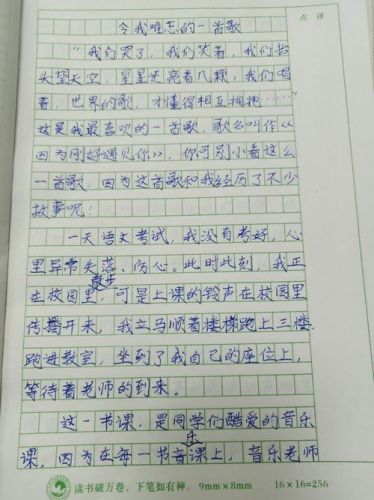 点评
令我难忘的一首歌
“我们哭了，我们笑着，我们抬
头望天空，星星还亮着几颗，我们唱
着，世界的歌，才懂得相互拥抱……”
这是我最喜欢的一首歌，歌名叫作《
因为刚好遇见你》，你可别小看这么
一首歌，因为这首歌和我经历了不少
故事呢！
一天语文考试，我没有考好，心
里异常失落、伤心。此时此刻，我正
散步
在校园里，可是上课的铃声在校园里
传播开来，我立马顺着楼梯跑上三楼，
跑进教室，坐到了我自己的座位上，
等待着老师的到来。
这一书课，是同学们酷爱的音乐
课，因为在每一书音乐课上，音乐老师
读书破万卷，下笔如有神。 9mm×8mm 16×16=256